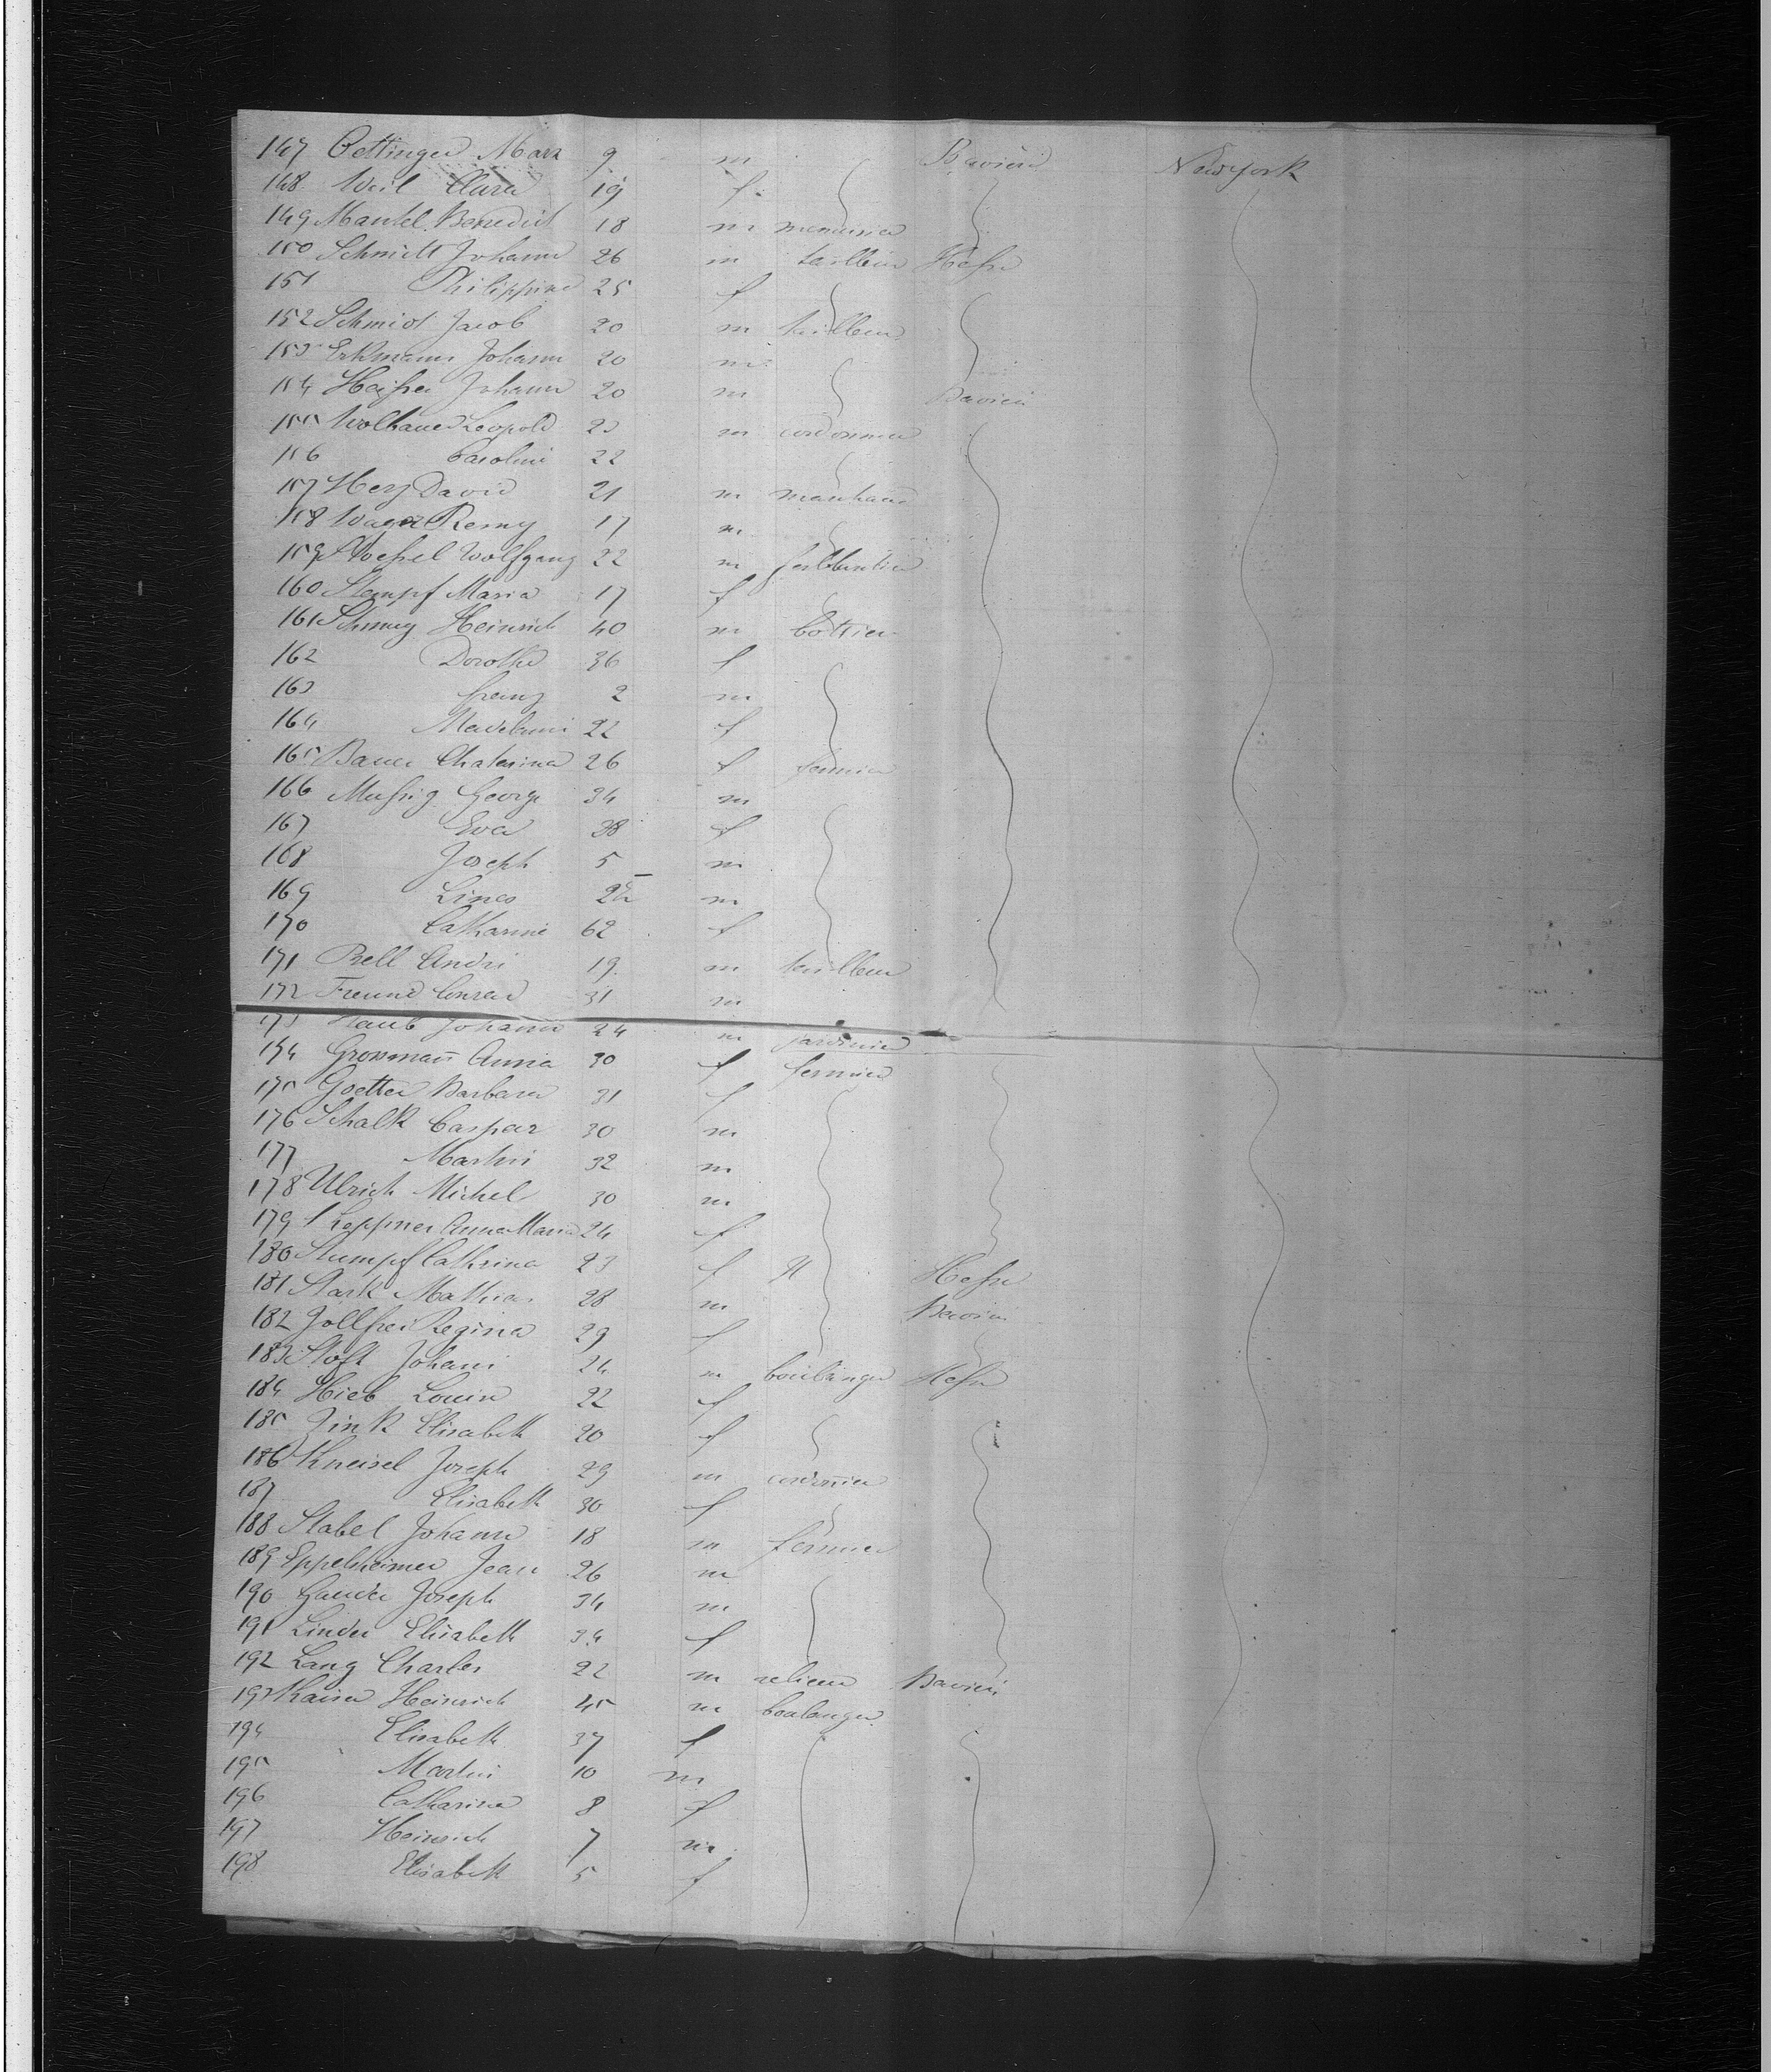 147 Oettinger Marx 9 m Baviere Newyork
148 Weil Clara 19 f
149 Mantel Benedict 18 m menuisier
150 Schmitt Johann 26 m tailleur Hesse
151 Philippine 25 f
152 Schmidt Jacob 20 m tailleur
153 Erkmann Johann 20 m
154 Johann 20 m Baviere
155 Leopold 23 m cordonnier
156 Caroline 22
157 Herz David 21 m marchand
158 Remy 17 m
159 Wolfgang 22 m ferblantier
160 Stempf Maria 17 f
161 Heinrich 40 m bottier
162 Dorothe 36 f
163 Franz 2 m
164 22 f
165 Bauer Chaterina 26 f fermier
166 Mussig George 34 m
167 Eva 38 f
168 Joseph 5 m
169 m
170 Catharine 62 f
171 Bell Andre 19 m tailleur
172 Freund Conrad 31 m
173 Staub Johann 24 m jardinier
174 Grossmann Anna 30 f fermier
175 Goetter Barbara 31 f
176 Schalk Caspar 30 m
177 Martin 32 m
178 Ulrich Michel 30 m
179 Anna Maria 24 f
180 Stumpf Cathrina 23 f Hesse
181 Stark Mathias 28 m Baviere
182 Regina 29 f
183 Stoft Johann 24 m boulanger Hesse
184 Hieb Louise 22 f
185 Zink Elisabeth 20 f
186 Kneisel Joseph 29 m cordonnier
187 Elisabeth 30 f
188 Stabel Johann 18 m fermier
189 Eppelsheimer Jean 26 m
190 Joseph 34 m
191 Linder Elisabeth 34 f
192 Lang Charles 22 m relieur Baviere
193 Kaiser Heinrich 45 m boulanger
194 Elisabeth 37 f
195 Martin 10 m
196 Catharina 8 f
197 Heinrich 7 m
198 Elisabeth 5 f